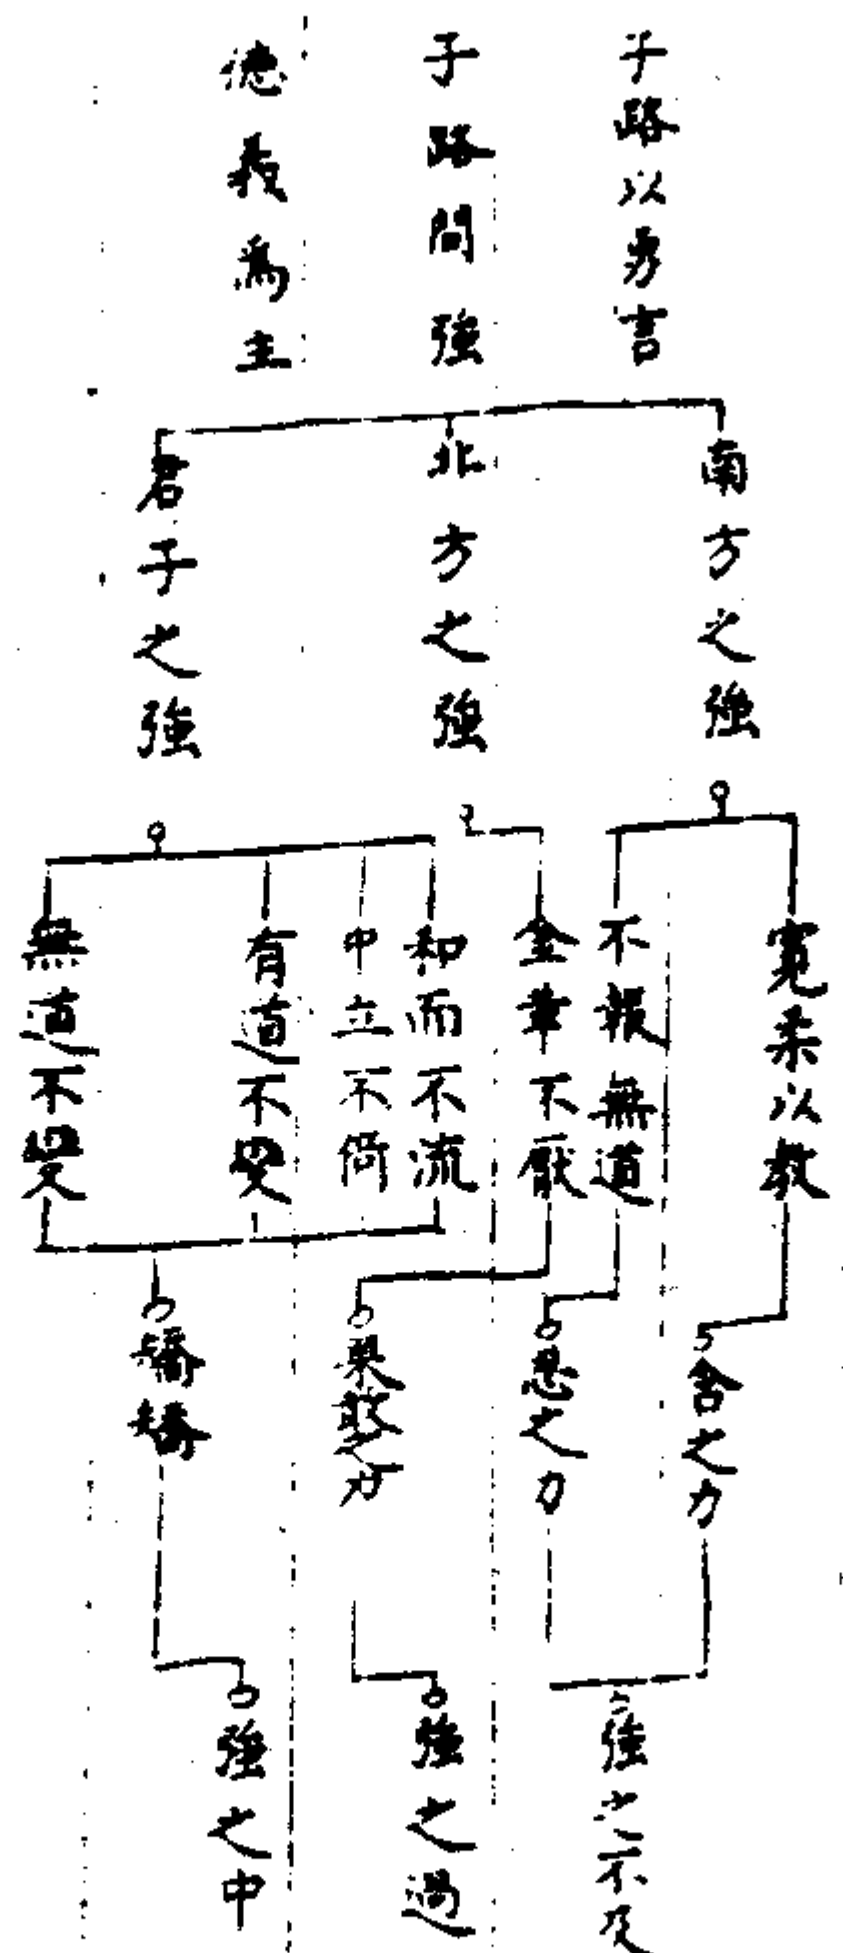 子路以勇言
子路問強
德義為主
南方之強
北方之強
君子之強
寬柔以教
不報無道
金革不厭
和而不流
中立不倚
有道不变
無道不變
含之力
忍之力
果敢之力
矯矯
強之不及
強之過
強之中